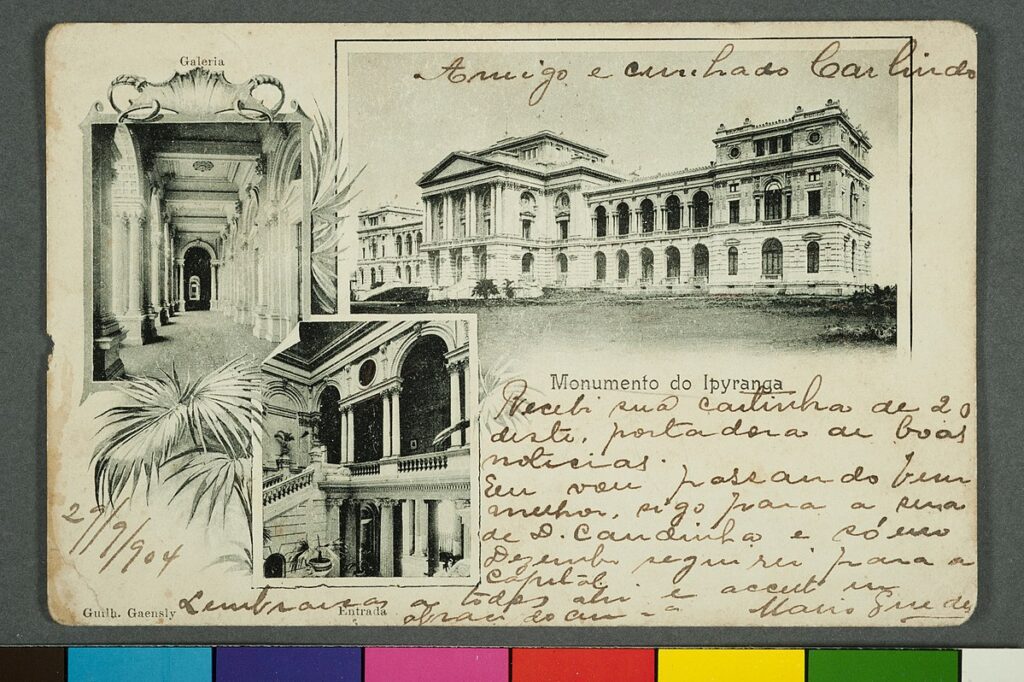 Galeria
Amigo e cunhado Carlindo
Monumento do Ipyranga
Recebi sua cartinha de 20
deste, portadora de boas
noticias.
Eu vou passando bem
melhor, sigo para a
de D. Candinha e só em
Dezembro seguirei para a
Capital
29/9/904
Lembranças a todos ahi e acceite um
abraço do
Mario Guedes
Guilh. Gaensly
Entrada